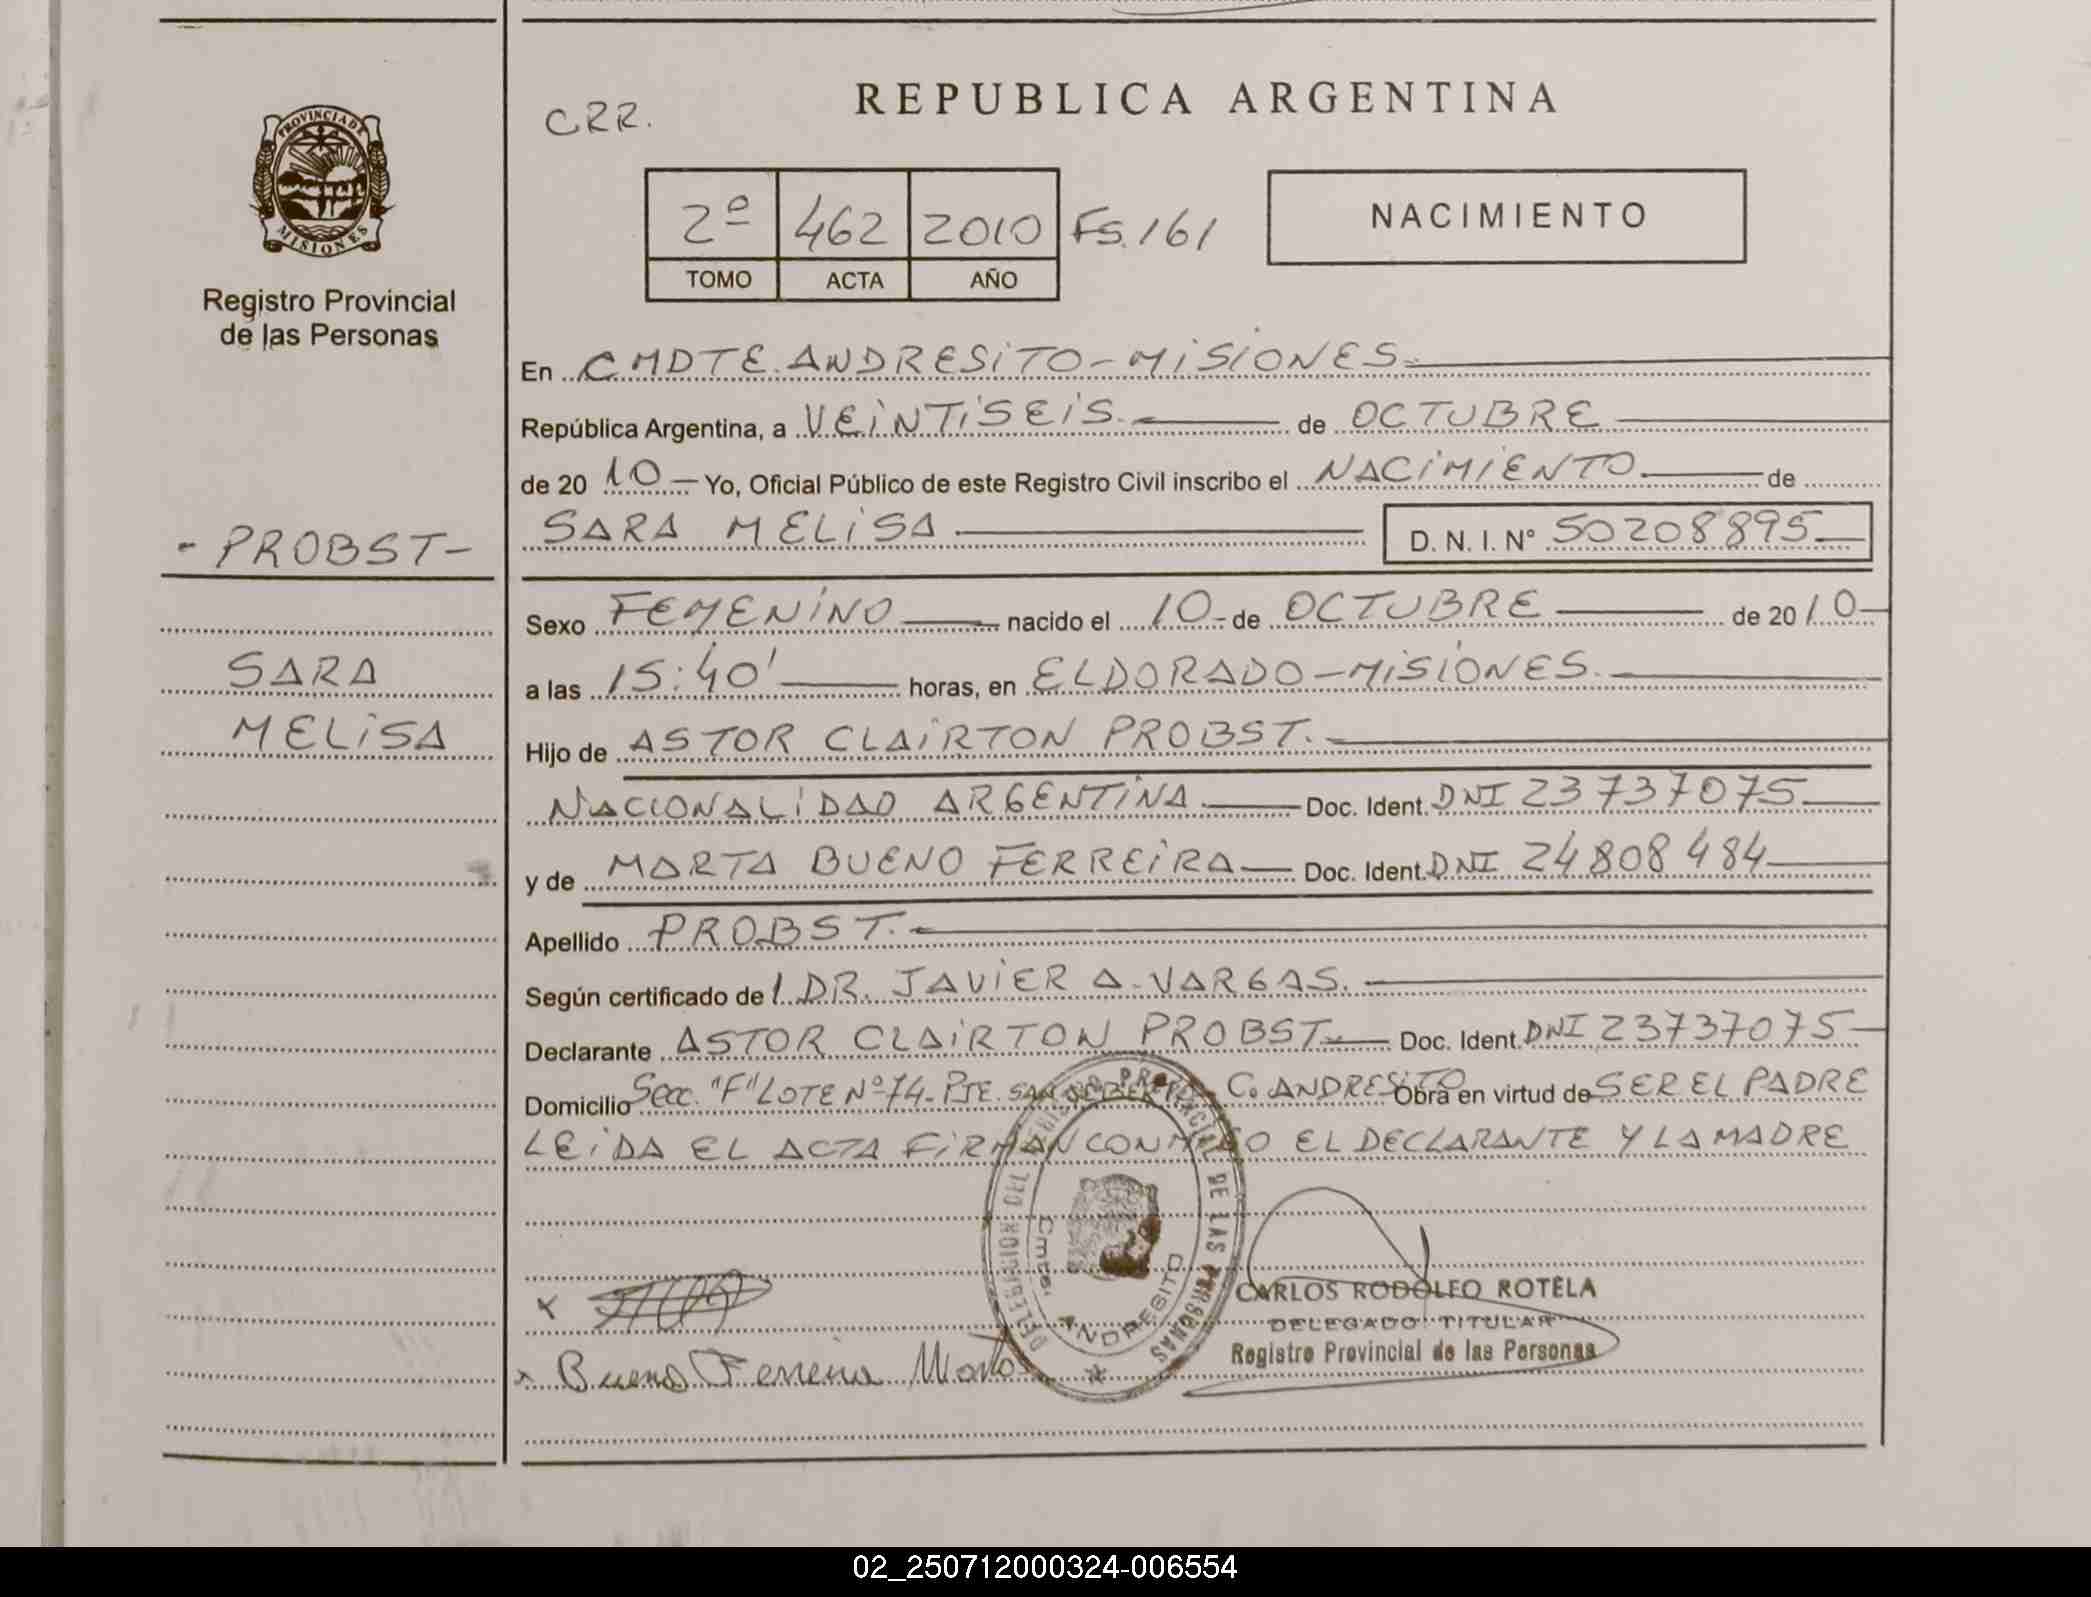 REPUBLICA ARGENTINA
CRR.
PROVINCIA DE
MISIONES
Registro Provincial
de las Personas
2º 462 2010 Fs. 161
TOMO ACTA AÑO
NACIMIENTO
En CMDTE. ANDRESITO - MISIONES.
República Argentina, a VEINTISEIS. de OCTUBRE
de 20 10 Yo, Oficial Público de este Registro Civil inscribo el NACIMIENTO de
SARA MELISA D. N. I. Nº 50208895
- PROBST -
SARA
MELISA
Sexo FEMENINO nacido el 10 - de OCTUBRE de 20 10
a las 15:40' horas, en ELDORADO - MISIONES.
Hijo de ASTOR CLAIRTON PROBST.
NACIONALIDAD ARGENTINA Doc. Ident. DNI 23737075
y de MARTA BUENO FERREIRA Doc. Ident. DNI 24808484
Apellido PROBST.
Según certificado del DR. JAVIER A. VARGAS.
Declarante ASTOR CLAIRTON PROBST. Doc. Ident. DNI 23737075
Domicilio Secc. "F" LOTE Nº 74 - PJE. SAN C. ANDRESITO Obra en virtud de SER EL PADRE
LEIDA EL ACTA FIRMAN CONMIGO EL DECLARANTE Y LA MADRE
DELEGACION DEL REGISTRO PROVINCIAL DE LAS PERSONAS
Cmte. ANDRESITO
x
x Bueno Ferreira Marta
CARLOS RODOLFO ROTELA
DELEGADO TITULAR
Registro Provincial de las Personas
02_250712000324-006554